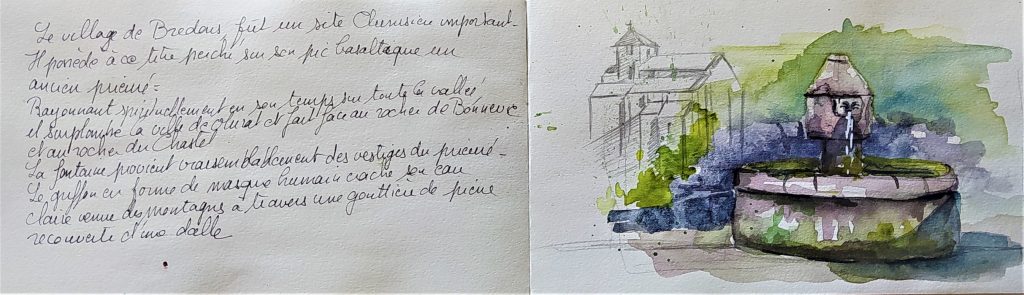 Le village de Bredons, fût un site Clunisien important.
Il possède à ce titre perché sur son pic basaltique un
ancien prieuré =
Rayonnant spirituellement en son temps sur toute la vallée
il surplombe la ville de Murat et fait face au rocher de Bonnevie
et au rocher du Chastel
La fontaine provient vraisemblablement des vestiges du prieuré =
Le griffon en forme de masque humain crache son eau
claire venue des montagnes à travers une gouttière de pierre
recouverte d'une dalle